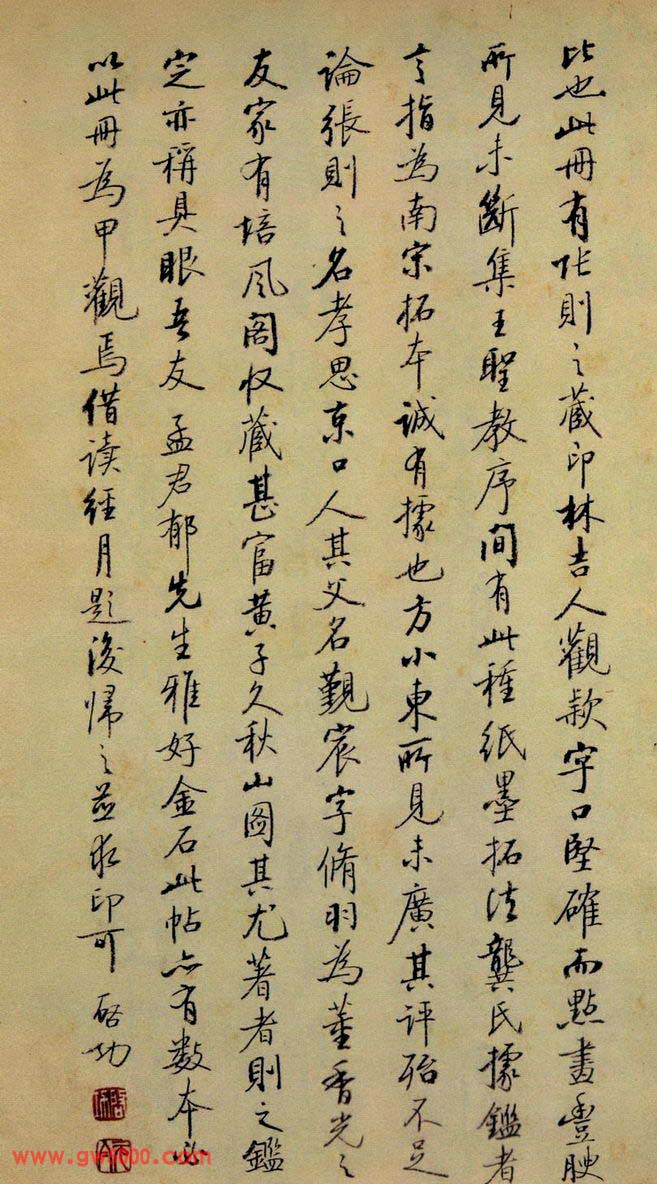 比也此冊有張則之藏印林吉人觀款字口堅確而點畫豐腴
所見未斷集王聖教序間有此種紙墨拓法龔氏據鑑者
言指為南宋拓本誠有據也方小東所見未廣其評殆不足
論張則之名孝思京口人其父名覲宸字脩羽為董香光之
友家有培風閣收藏甚富黃子久秋山圖其尤著者則之鑑
定亦稱具眼吾友孟君郁先生雅好金石此帖亦有數本必
以此冊為甲觀焉借读經月題後歸之並求印可 啟功
www.gw1000.com